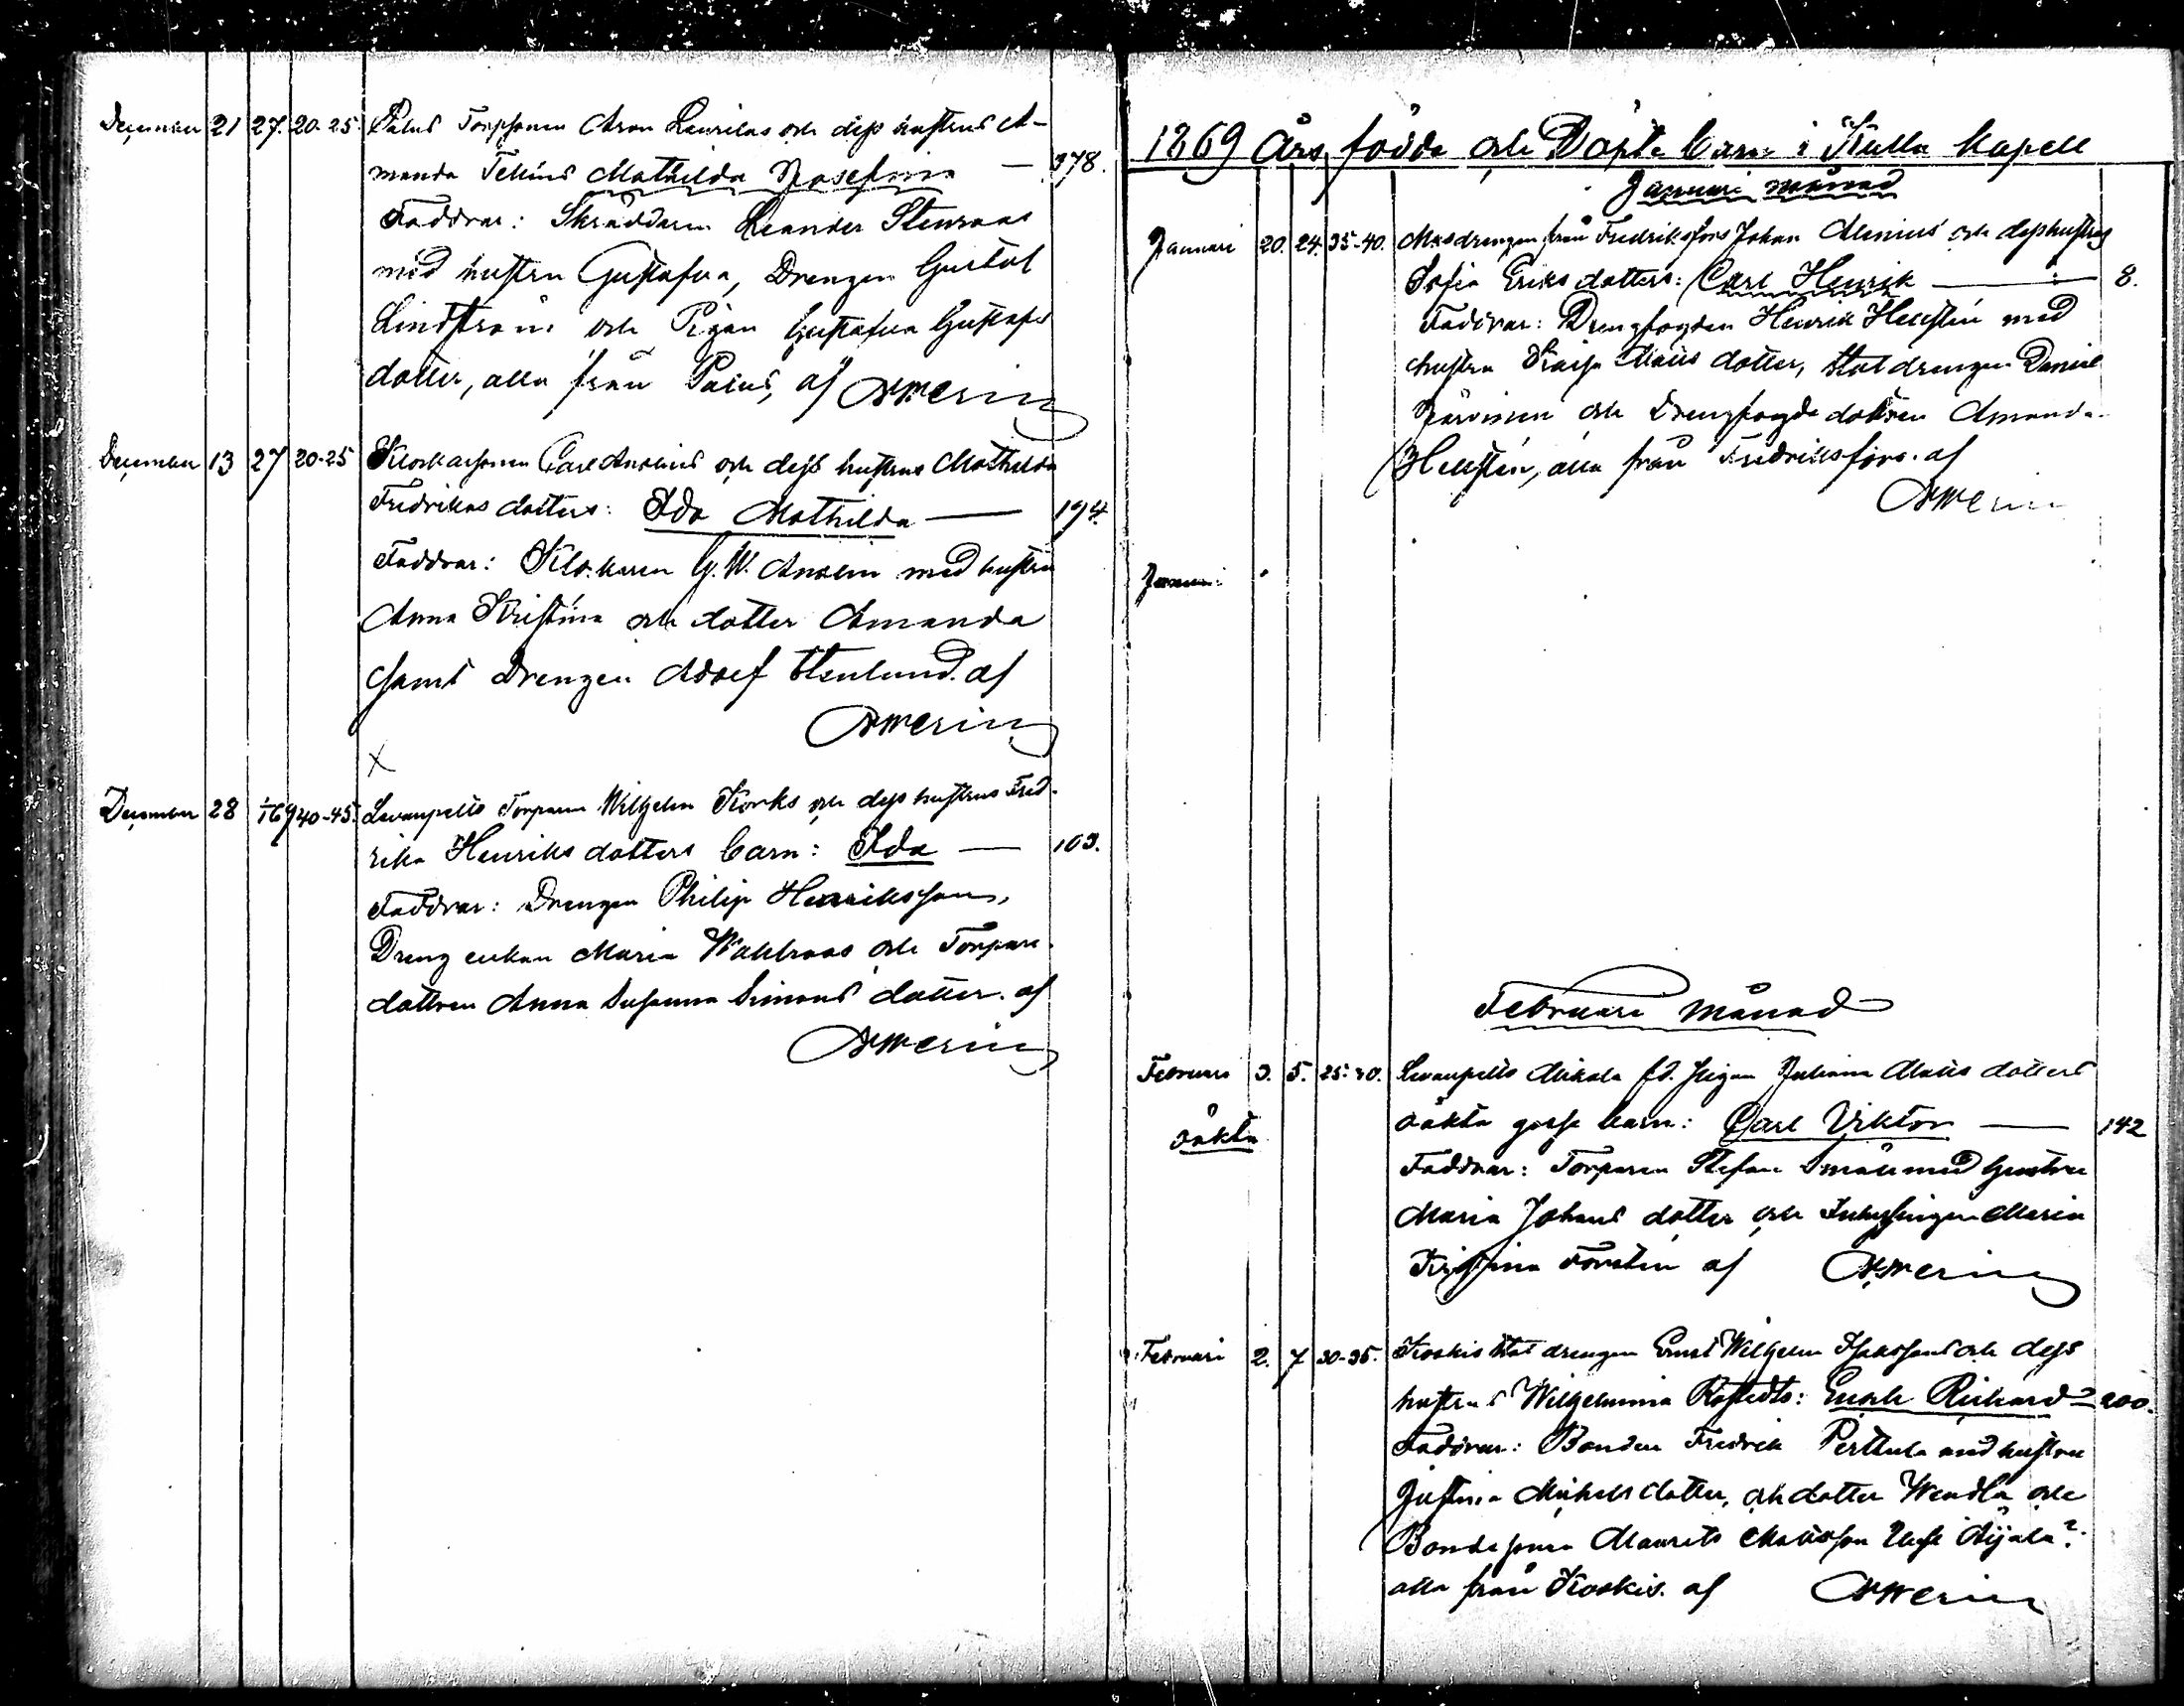 December 21 27. 20-25. Palus Torpsonen Aron Laurilas och dess hustrus A-
manda Telléns Mathilda Josefina — 378.
Faddrar: Skräddaren Leander Stenroos
med hustru Gustafva, Drengen Gustaf
Lindström och Pigan Gustafva Gustafs
dotter, alla från Palus, af AWerin
December 13 27 20-25 Klockarsonen Carl Anolins och dess hustrus Mathilda
Fredrikas dotters: Ida Mathilda — 194.
Faddrar: Klockaren G. W. Anolin med hustru
Anna Kristina och dotter Amanda
samt Drengen Adolf Stenlund. af
AWerin
X
December 28 1/1 69 40-45. Levanpelto Torparen Wilhelm Korks och dess hustrus Fred-
rika Henriks dotters barn: Ida — 103.
Faddrar: Drengen Philip Henriksson,
Dreng enkan Maria Wahlroos och Torpare
dottren Anna Susanna Simons dotter. af
AWerin
1869 Års födde och Döpte Barn i Kulla Kapell
Januari månad
Januari 20. 24. 35-40. drengen från Fredriksfors Johan Alenius och dess hustrus
Sofia Eriks dotters: Carl Henrik — 8.
Faddrar: Drengfogden Henrik Hellstén med
hustru Kaisa Matts dotter, Stat drengen Daniel
Järvinen och Drengfogde dottren Amanda
Hellstén, alla från Fredriksfors. af
AWerin
Januari
Februari månad
Februari 3. 5. 25-30. Levanpelto Mikola fd. Pigan Juliana Matts dotters
oäkta oäkta gosse barn: Carl Viktor — 142
Faddrar: Torparen Stefan Småll med hustru
Maria Johans dotter och Inhysingen Maria
Kristina Forstén af AWerin
Februari 2. 7 30-35. Koskis Stat drengen Ernst Wilhelm Isakssons och dess
hustrus Wilhelmina Rostedts: Enok Rickard — 200.
Faddrar: Bonden Fredrik Perttula med hustru
Justina Mickels dotter, och dotter Wendla och
Bondesonen Maurits Mattsson Äijälä?
alla från Koskis. af AWerin